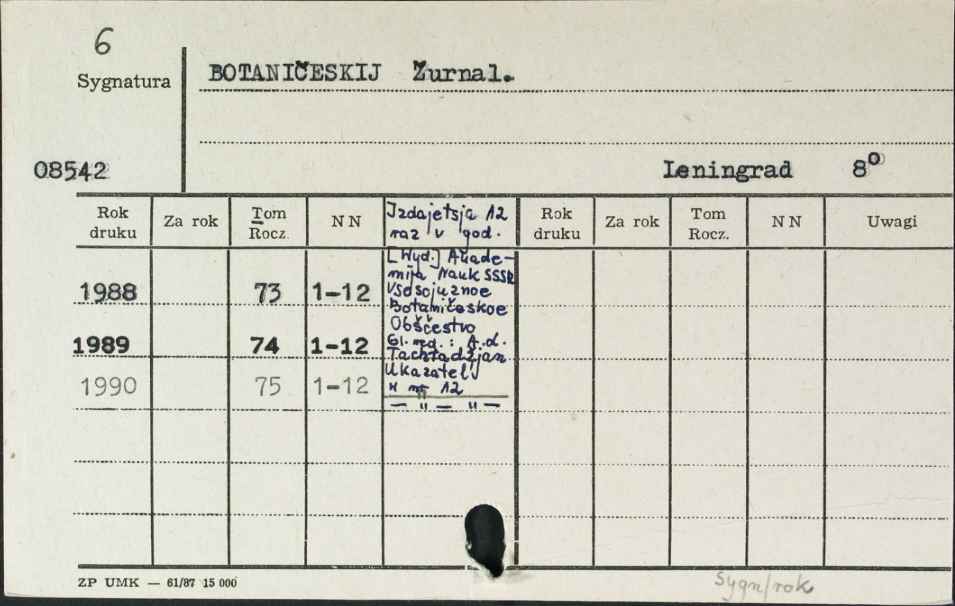 6
Sygnatura
BOTANIČESKIJ Žurnal.
08542
Leningrad 8°
Rok druku Za rok Tom Rocz. NN Izdajetsja 12 raz v god. Rok druku Za rok Tom Rocz. NN Uwagi
1988 73 1-12
1989 74 1-12
1990 75 1-12
[Wyd.] Akade-
mija Nauk SSSR
Vsosojuznoe
Botaničeskoe
Obščestvo
Gl. red.: A.L.
Tachtadžjan
Ukazatel'
w nr 12
— " — " —
ZP UMK — 61/87 15 000
Sygn/rok